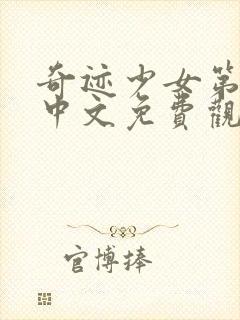 奇迹少女第
中文免費觀
官博捧